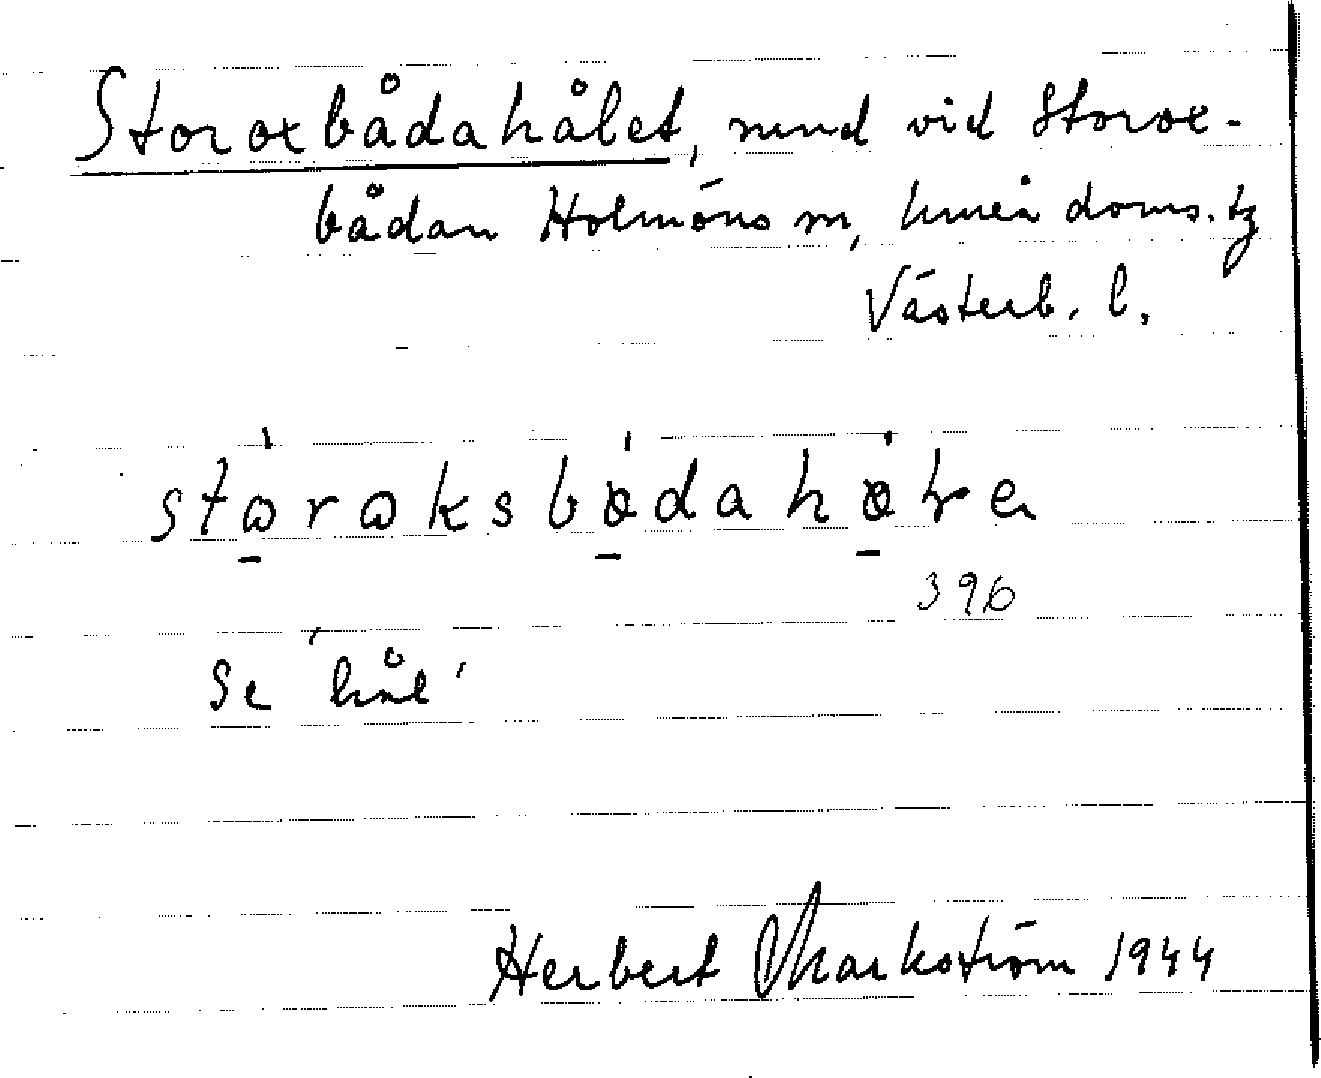 Storoxbådahålet, sund vid Storox-
bådan Holmöns sn, Umeå doms. tg
Västerb. l.
störoksbådahåle
396
Se 'hål'
Herbert Markström 1944